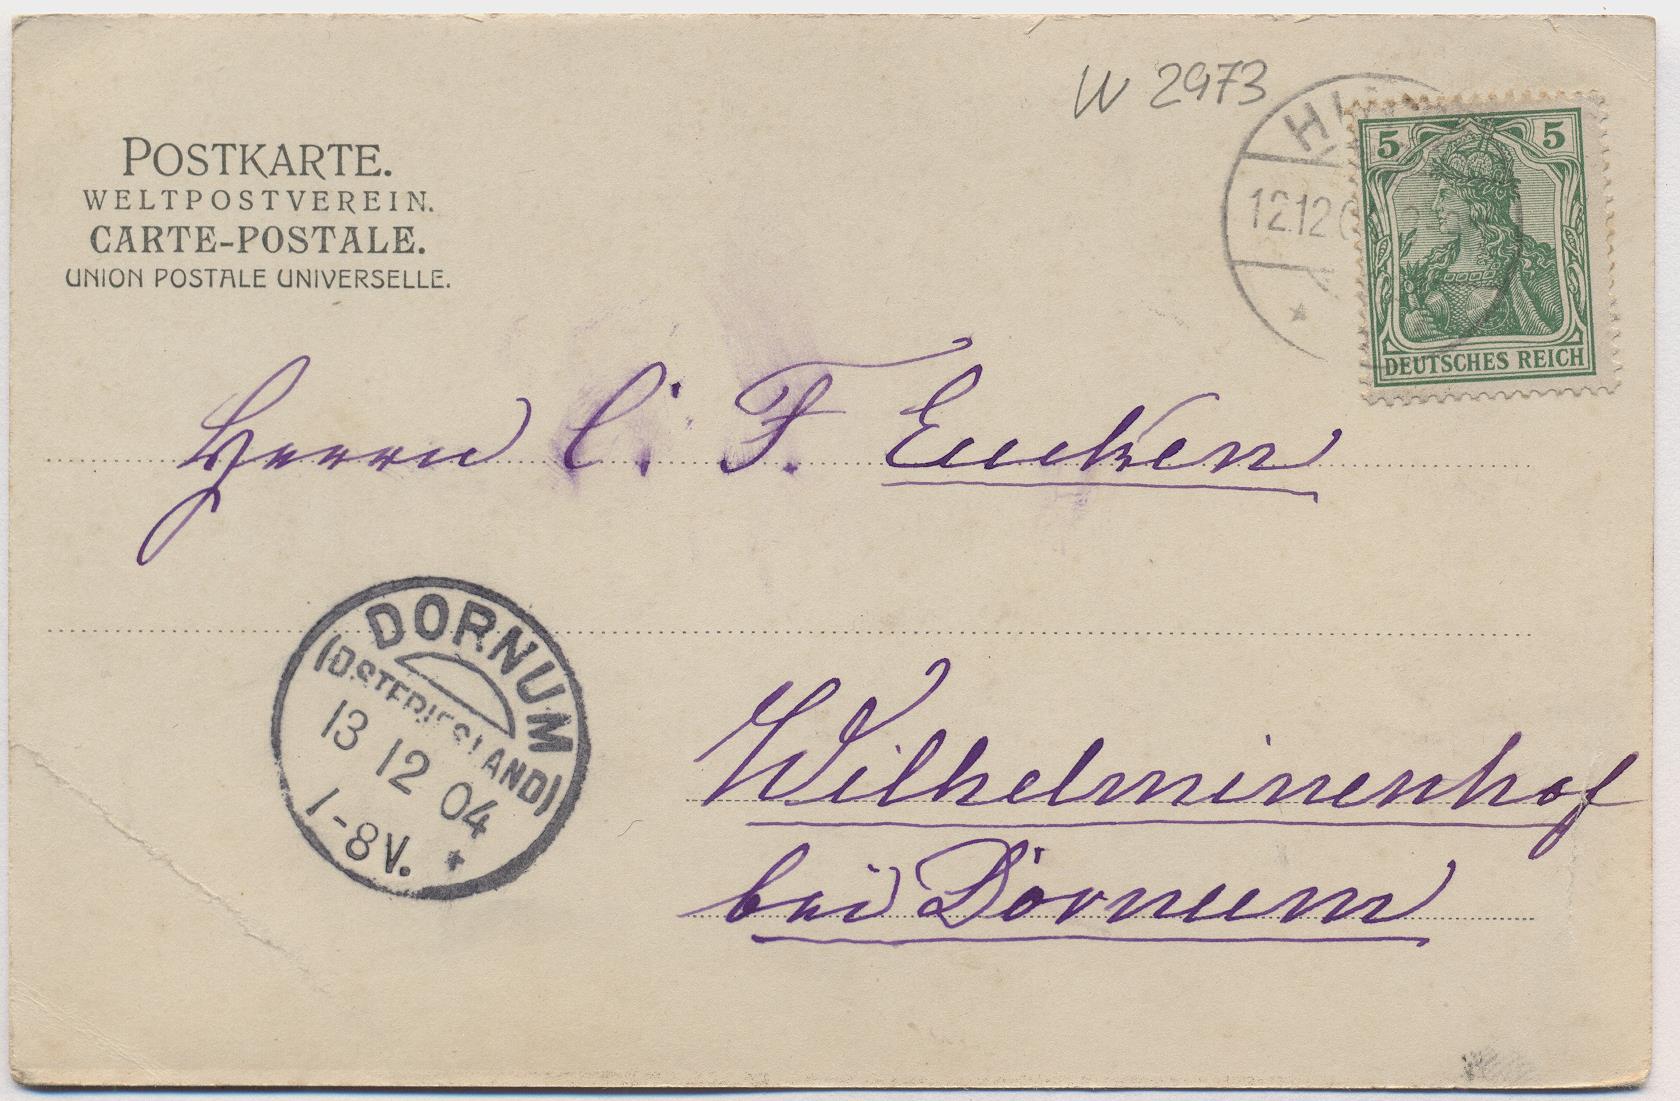 W 2973
POSTKARTE.
WELTPOSTVEREIN.
CARTE-POSTALE.
UNION POSTALE UNIVERSELLE.
12.12
5 5
DEUTSCHES REICH
Herrn C. F. Eucken
DORNUM
(OSTFRIESLAND)
13 12 04
1-8V.
Wilhelminenhof
bei Dornum